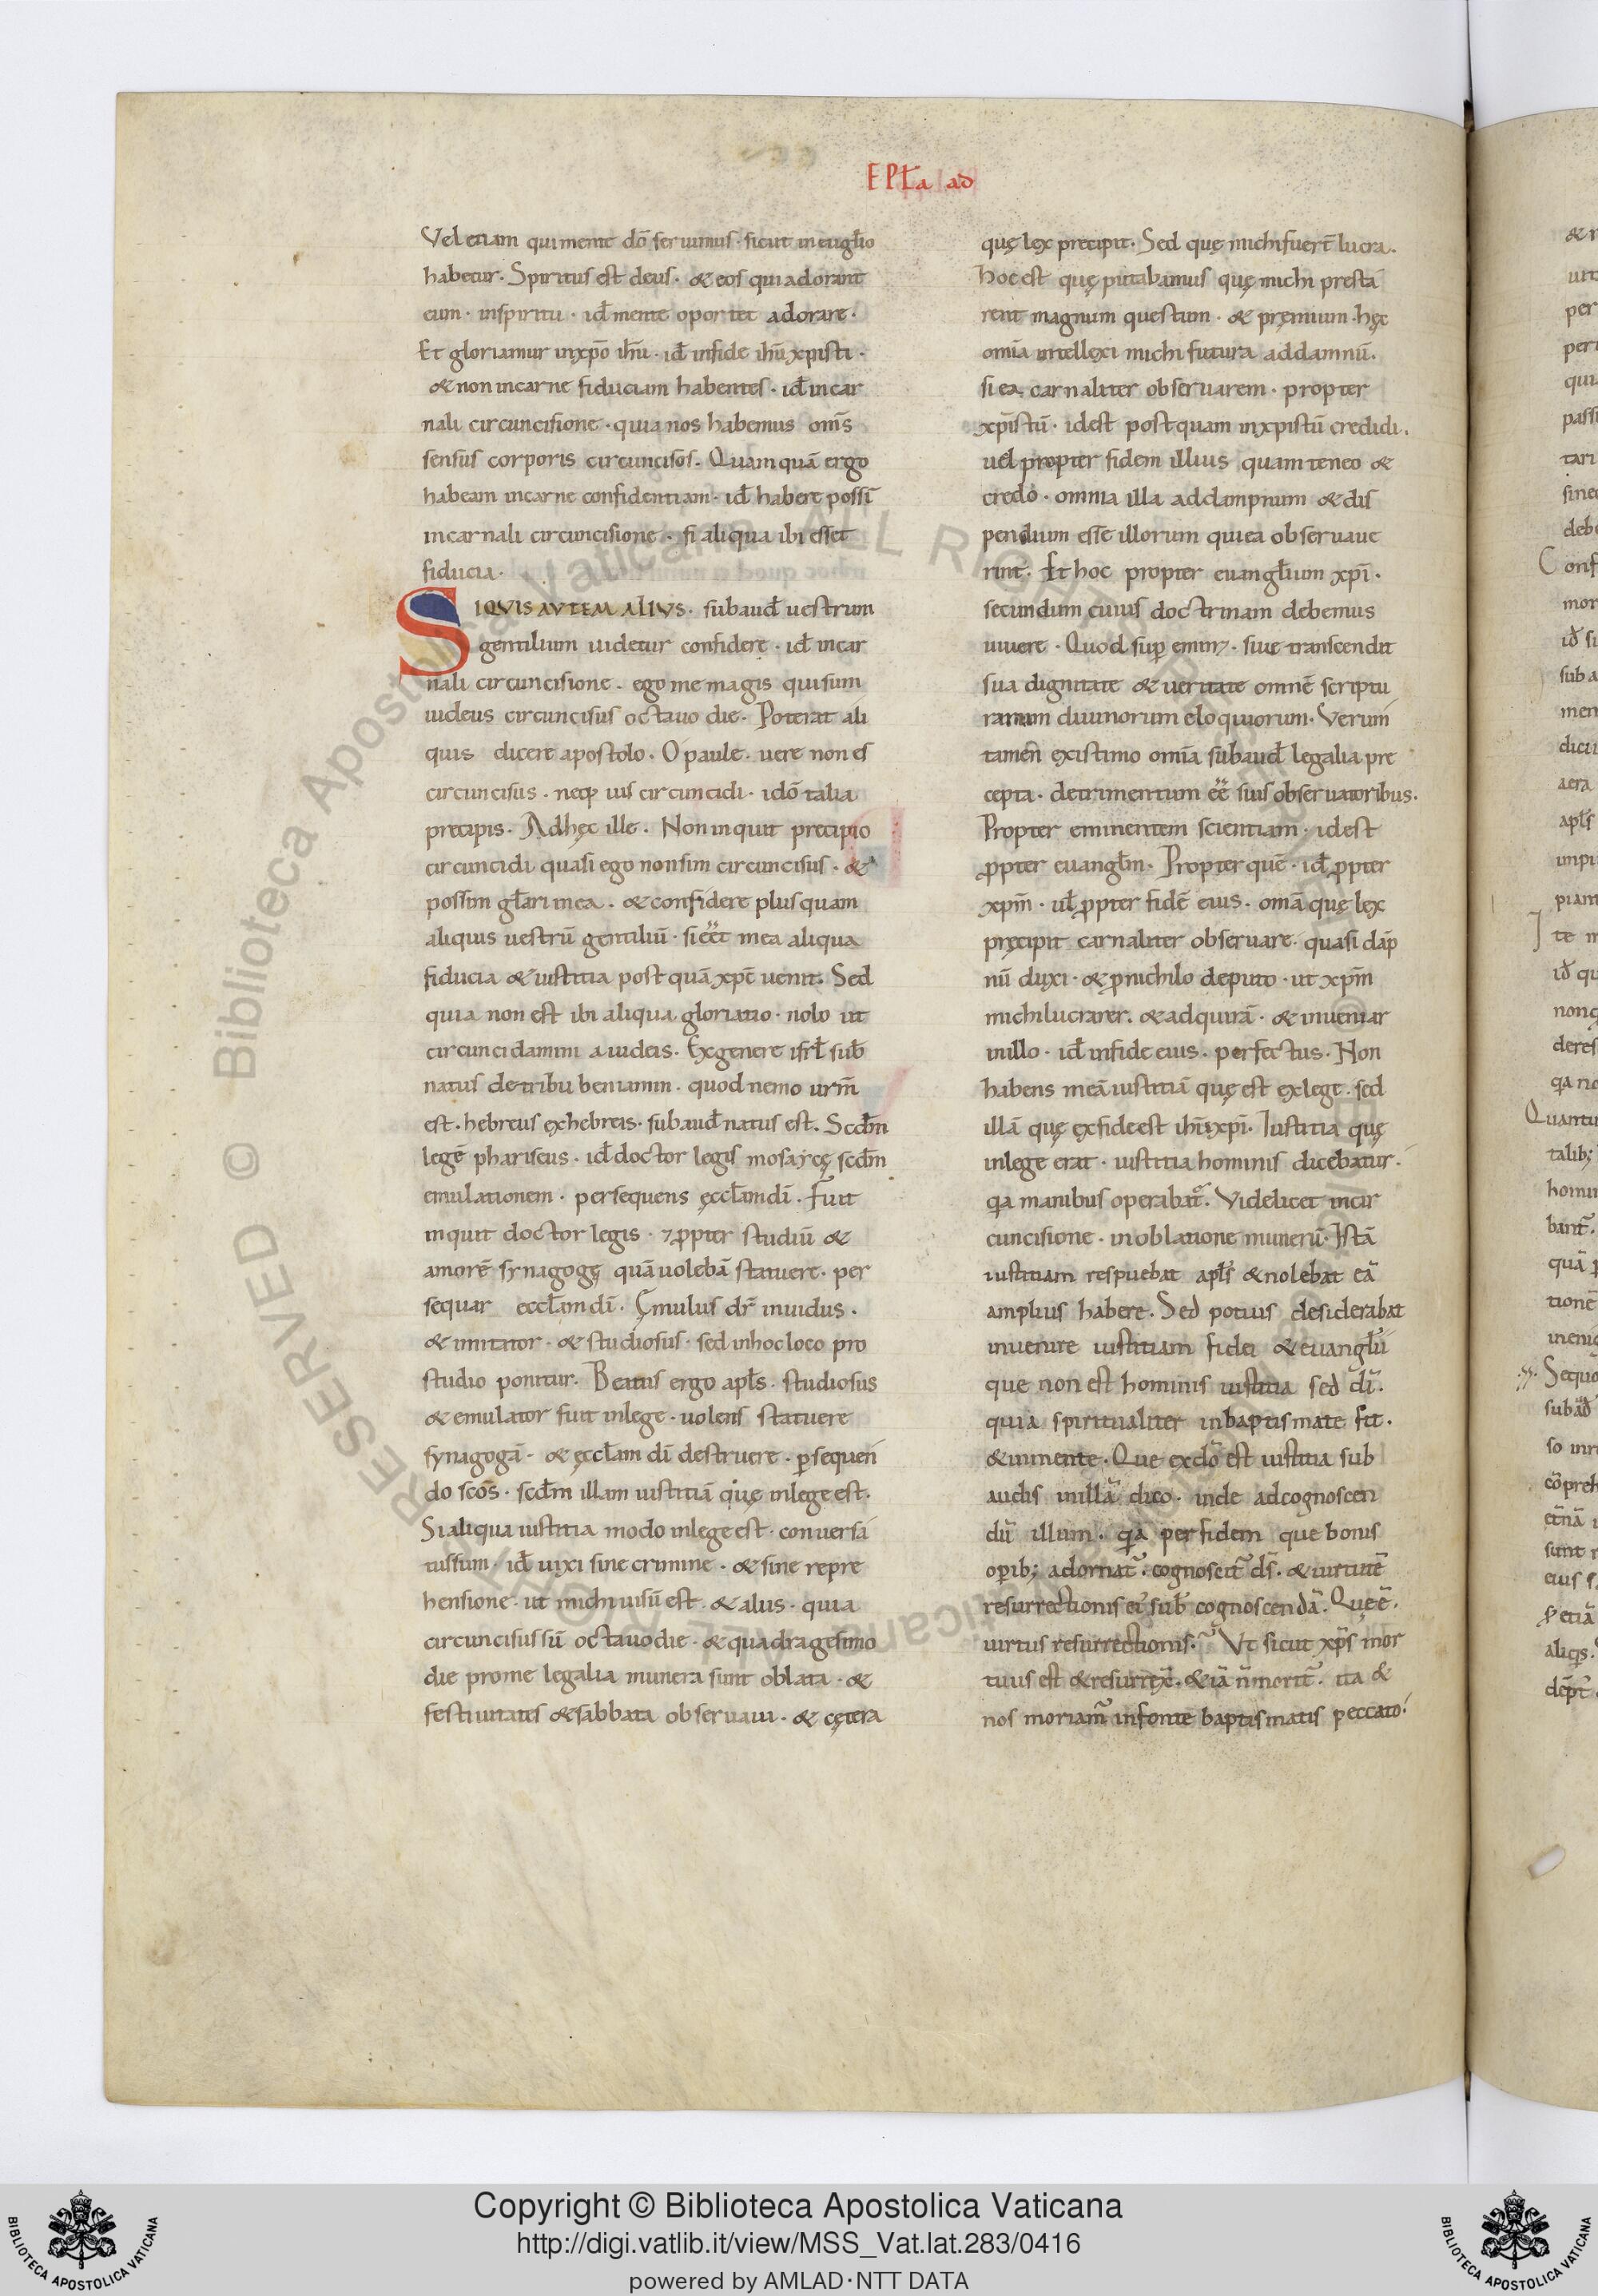 EPL̄a ad
Vel etiam qui mente dō seruimus · sicut in eugl̄io
habetur · Spiritus est deus · & eos qui adorant
eum · in spiritu · id̄ mente oportet adorare ·
Et gloriamur in xp̄o ihū · id̄ in fide ihū xpisti ·
& non in carne fiduciam habentes · id̄ in car
nali circuncisione · quia nos habemus om̄s
sensus corporis circuncisos. Quamquā ergo
habeam in carne confidentiam · id̄ habere possī
in carnali circuncisione · si aliqua ibi esset
fiducia ·
SI QVIS AVTEM ALIVS · subaud̄ uestrum
gentilium uidetur confidere · id̄ in car
nali circuncisione · ego me magis qui sum
iudeus circuncisus octauo die · Poterat ali
quis dicere apostolo · O paule · uere non es
circuncisus · neq; uis circuncidi · idō talia
precipis · Ad hęc ille · Non inquit precipio
circuncidi quasi ego non sim circuncisus · &
possim gl̄ari in ea · & confidere plus quam
aliquis uestrū gentiliū · si eēt mea aliqua
fiducia & iustitia postquā xp̄c uenit. Sed
quia non est ibi aliqua gloriatio · nolo ut
circuncidamini a iudeis · Ex genere isrl̄ sub̄
natus de tribu beniamin · quod nemo urm̄
est · hebreus ex hebreis · subaud̄ natus est. Scd̄m
legē phariseus · id̄ doctor legis mosaycę scd̄m
emulationem · persequens ęccl̄am dī · Fuit
inquit doctor legis · ⁊ ꝓpter studiū &
amorē synagogę quā uolebā statuere · per
sequar eccl̄am dī · Ęmulus dr̄ inuidus ·
& imitator · & studiosus · sed in hoc loco pro
studio ponitur. Beatus ergo apl̄s · studiosus
& emulator fuit in lege · uolens statuere
synagogā · & ęccl̄am dī destruere · ꝑsequen
do scōs · scd̄m illam iustitiā quę in lege est ·
Si aliqua iustitia modo in lege est · conuersa
tus sum · id̄ uixi sine crimine · & sine repre
hensione · ut michi uisū est · & aliis · quia
circuncisus sū octauo die · & quadragesimo
die pro me legalia munera sunt oblata · &
festiuitates & sabbata obseruaui · & cętera
quę lex precipit · Sed quę michi fuer̄t lucra ·
hoc est quę putabamus quę michi presta
rent magnum questum · & pręmium · hęc
om̄ia intellexi michi futura ad damnū ·
si ea carnaliter obseruarem · propter
xpīstū · id est postquam in xpistū credidi ·
uel propter fidem illius quam teneo &
credo · omnia illa ad dampnum & dis
pendium esse illorum qui ea obseruaue
rint · Et hoc propter euangl̄ium xpī ·
secundum cuius doctrinam debemus
uiuere · Quod suꝑ emin& · siue transcendit
sua dignitate & ueritate omnē scriptu
rarum diuinorum eloquiorum · Verum
tamen existimo om̄ia subaud̄ legalia pre
cepta · detrimentum eē suis obseruatoribus ·
Propter eminentem scientiam · id est
ꝓpter euangl̄m · Propter quē · id̄ ꝓpter
xpm̄ · ul̄ ꝓpter fidē eius · om̄a quę lex
pręcipit carnaliter obseruare · quasi dāp
nū duxi · & ꝓ nichilo deputo · ut xpm̄
michi lucrarer · & adquirā · & inueniar
in illo · id̄ in fide eius · perfectus · Non
habens meā iustitiā quę est ex lege · sed
illā quę ex fide est ihū xpī · Iustitia quę
in lege erat · iustitia hominis dicebatur ·
qa manibus operabat̄ · Videlicet in cir
cuncisione · in oblatione munerū · Istā
iustitiam respuebat apl̄s & nolebat eā
amplius habere · Sed potius desiderabat
inuenire iustitiam fidei & euangl̄ii
que non est hominis iustitia sed dī ·
quia spiritualiter in baptismate fit ·
& in mente · Que ex dō est iustitia sub
audis in illā dico · inde ad cognoscen
dū illum · qa per fidem que bonis
oꝑib; adornat̄ · cognoscit̄ ds̄ · & uirtutē
resurrectionis ei' sub̄ cognoscendā · Quę ē
uirtus resurrectionis · Vt sicut xp̄s mor
tuus est & resurrex̄ · & iā n̄ morit̄ · ita &
nos moriam̄ in fonte baptismatis peccato ·